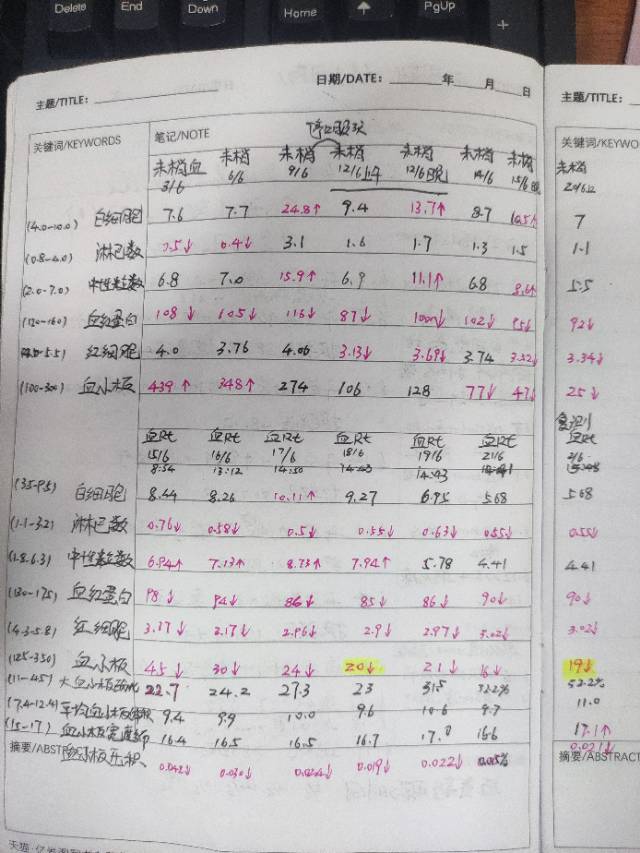 Delete
End
Down
Home
PgUp
日期/DATE: 年 月 日
主题/TITLE:
关键词/KEYWORDS
笔记/NOTE
末梢血 末梢 末梢 末梢 末梢 末梢 末梢
3/6 6/6 9/6 12/6上午 12/6晚 14/6 15/6晚
(4.0-10.0) 白细胞 7.6 7.7 24.8↑ 9.4 13.7↑ 8.7 10.5↑
(0.8-4.0) 淋巴数 0.5↓ 0.4↓ 3.1 1.6 1.7 1.3 1.5
(2.0-7.0) 中性粒数 6.8 7.0 15.9↑ 6.9 11.1↑ 6.8 8.6↑
(120-160) 血红蛋白 108↓ 105↓ 116↓ 87↓ 100↓ 102↓ 95↓
红细胞 4.0 3.76 4.06 3.13↓ 3.69↓ 3.74 3.32↓
(100-300) 血小板 439↑ 348↑ 274 106 128 77↓ 47↓
血Rt 血Rt 血Rt 血Rt 血Rt 血Rt
15/6 16/6 17/6 18/6 19/6 21/6
8:54 13:12 14:50 14:43 14:43
(3.5-9.5) 白细胞 8.44 8.26 10.11↑ 9.27 6.95 5.68
(1.1-3.2) 淋巴数 0.76↓ 0.58↓ 0.5↓ 0.55↓ 0.63↓ 0.55↓
(1.8-6.3) 中性粒数 6.94↑ 7.13↑ 8.73↑ 7.94↑ 5.78 4.41
(130-175) 血红蛋白 98↓ 94↓ 86↓ 85↓ 86↓ 90↓
(4.3-5.8) 红细胞 3.17↓ 2.96↓ 2.9↓ 2.97↓ 3.02↓
(125-350) 血小板 45↓ 30↓ 24↓ 20↓ 21↓ 16↓
(11-45) 大血小板 22.7 24.2 27.3 23 31.5
(7.4-12.4) 平均血小板体积 9.4 9.9 10.0 9.6 10.6 9.7
(15-17) 血小板宽度 16.4 16.5 16.5 16.7 17.0 16.6
摘要/ABSTR 血小板压积 0.042↓ 0.030↓ 0.024↓ 0.019↓ 0.022↓ 0.015%
主题/TITLE:
关键词/KEYWO
末梢
7
1.1
5.5
92↓
3.34↓
25↓
复测
血Rt
5.68
0.55↓
4.41
90↓
3.02↓
19↓
11.0
17.1↑
0.021↓
摘要/ABSTRACT